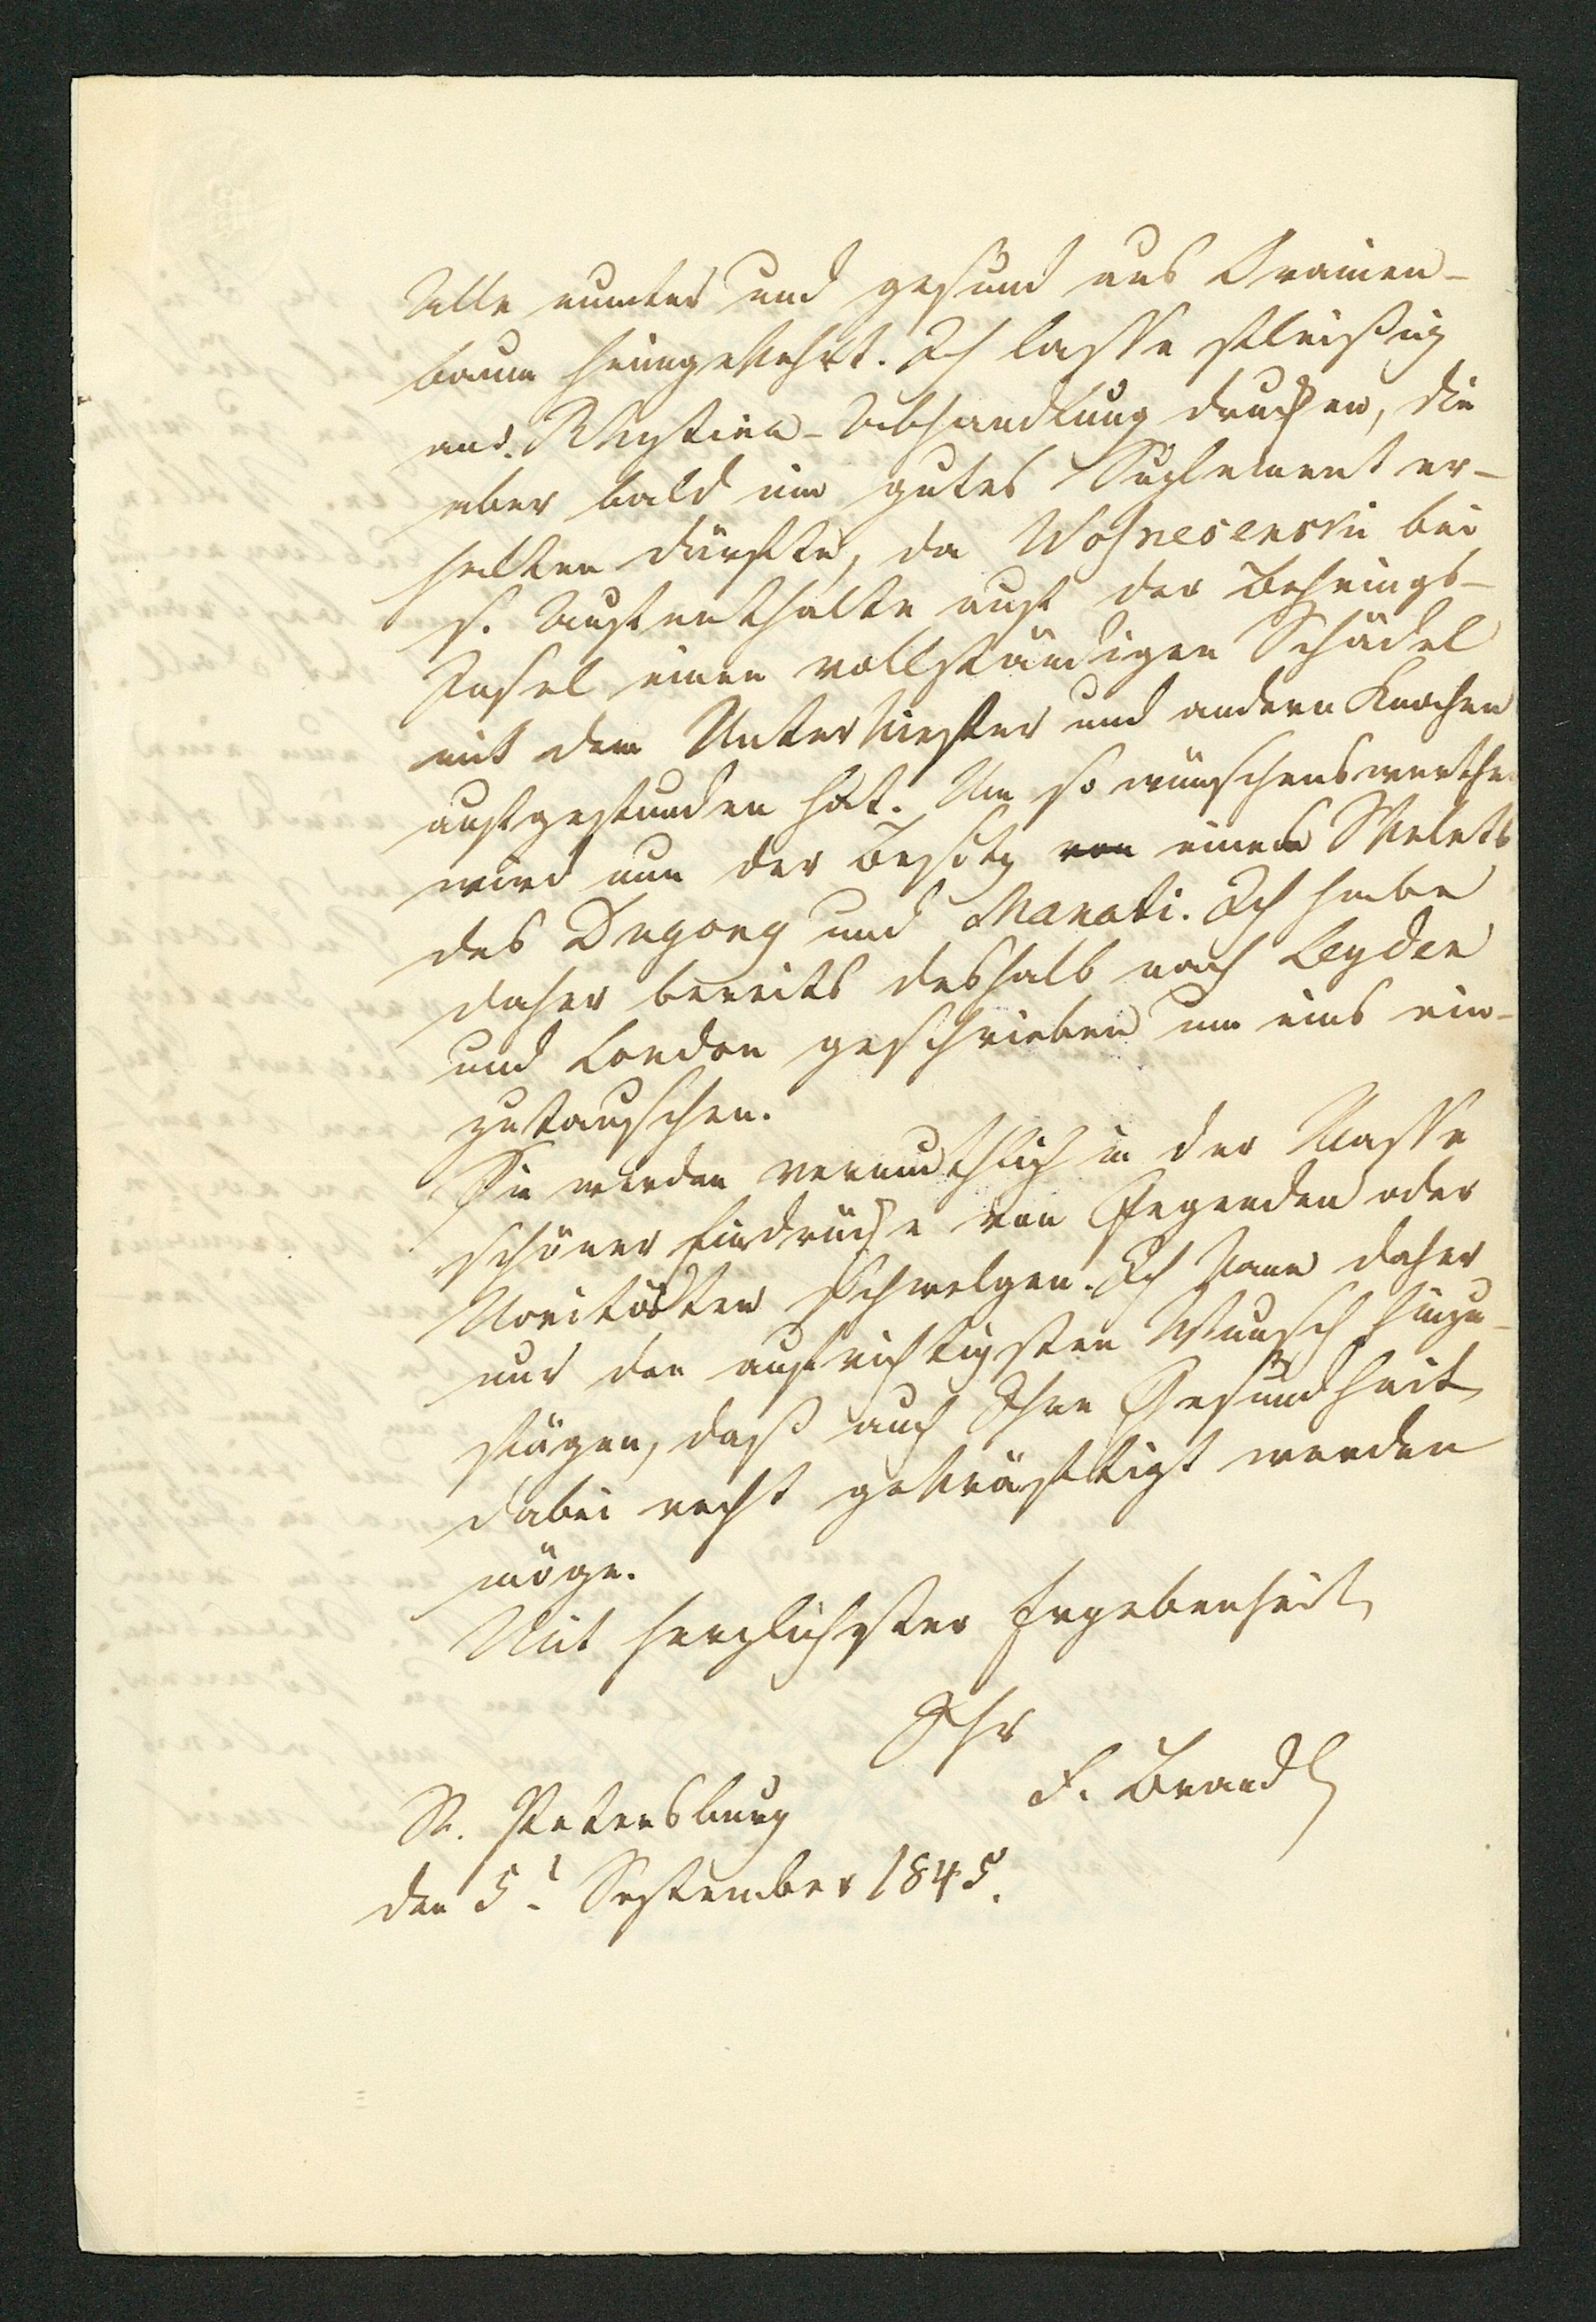 Alle munter und gesund aus Oranien-
baum heimgekehrt. Ich lasse fleißig
an d. Rhytina-Abhandlung drucken, die
aber bald ein gutes Suplement er-
halten dürfte, da Wosnesenski bei
s. Aufenthalte auf der Behrings-
Insel einen vollständigen Schädel
mit dem Unterkiefer und andern Knochen
aufgefunden hat. Um so wünschenswerther
wird nun der Besitz von eines Skelets
des Dugong und Manati. Ich habe
daher bereits deshalb nach Leyden
und London geschrieben um eins ein-
zutauschen.
Sie werden vermuthlich in der Masse
schöner Eindrücke von Gegenden oder
Novitäten schwelgen. Ich kann daher
nur den aufrichtigsten Wunsch hinzu-
fügen, daß auch Ihre Gesundheit
dabei recht gekräftigt werden
möge.
Mit herzlichster Ergebenheit
Ihr
F. Brandt
St. Petersburg
den 5t. September 1845.